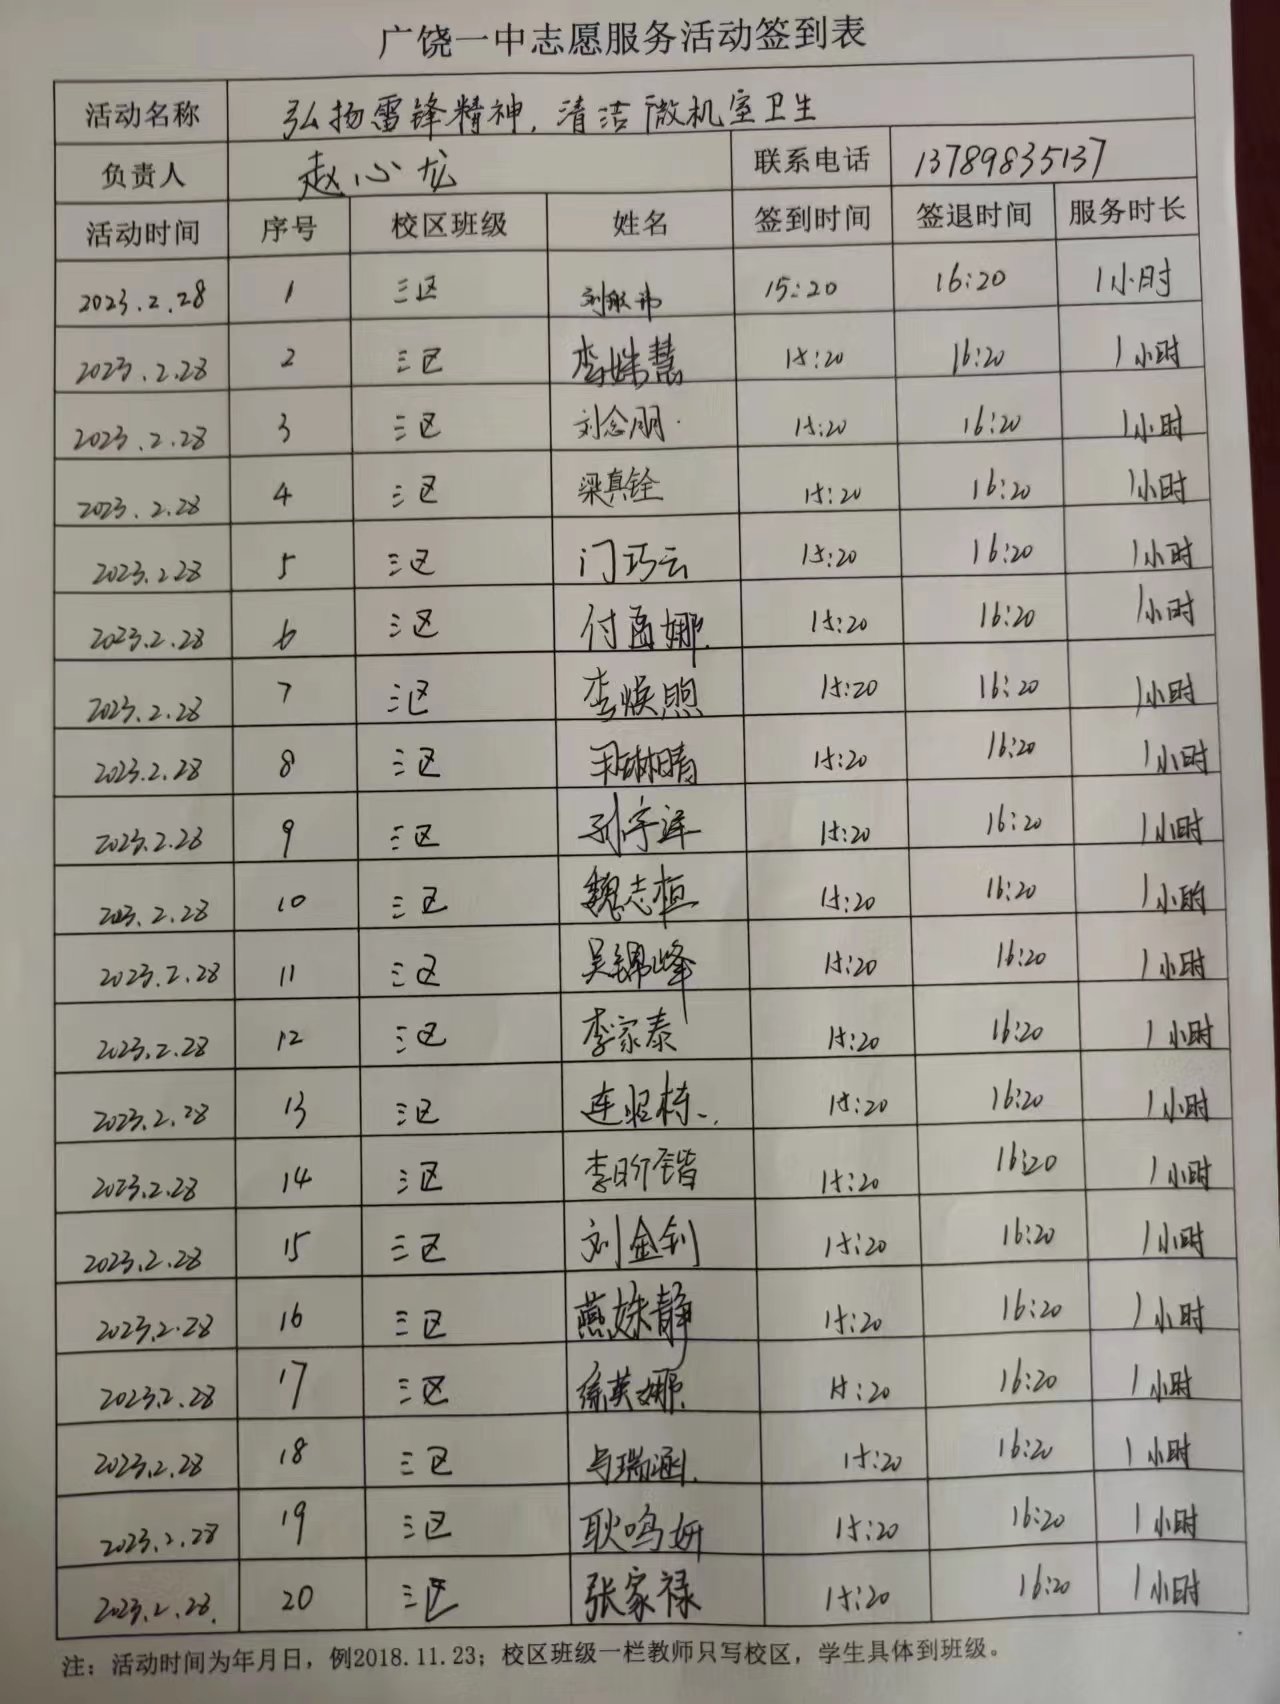 广饶一中志愿服务活动签到表
活动名称 弘扬雷锋精神,清洁微机室卫生
负责人 赵心龙 联系电话 13789835137
活动时间 序号 校区班级 姓名 签到时间 签退时间 服务时长
2023.2.28 1 三区 15:20 16:20 1小时
2023.2.28 2 三区 李姝慧 15:20 16:20 1小时
2023.2.28 3 三区 刘念朋 15:20 16:20 1小时
2023.2.28 4 三区 梁真铨 15:20 16:20 1小时
2023.2.28 5 三区 门巧云 15:20 16:20 1小时
2023.2.28 6 三区 付函娜 15:20 16:20 1小时
2023.2.28 7 三区 李焕煦 15:20 16:20 1小时
2023.2.28 8 三区 15:20 16:20 1小时
2023.2.28 9 三区 孙宇洋 15:20 16:20 1小时
2023.2.28 10 三区 魏志桓 15:20 16:20 1小时
2023.2.28 11 三区 吴锦峰 15:20 16:20 1小时
2023.2.28 12 三区 李家泰 15:20 16:20 1小时
2023.2.28 13 三区 15:20 16:20 1小时
2023.2.28 14 三区 李昕锴 15:20 16:20 1小时
2023.2.28 15 三区 刘金钊 15:20 16:20 1小时
2023.2.28 16 三区 燕姝静 15:20 16:20 1小时
2023.2.28 17 三区 徐英娜 15:20 16:20 1小时
2023.2.28 18 三区 15:20 16:20 1小时
2023.2.28 19 三区 耿鸣妍 15:20 16:20 1小时
2023.2.28. 20 三区 张家禄 15:20 16:20 1小时
注:活动时间为年月日,例2018.11.23;校区班级一栏教师只写校区,学生具体到班级。